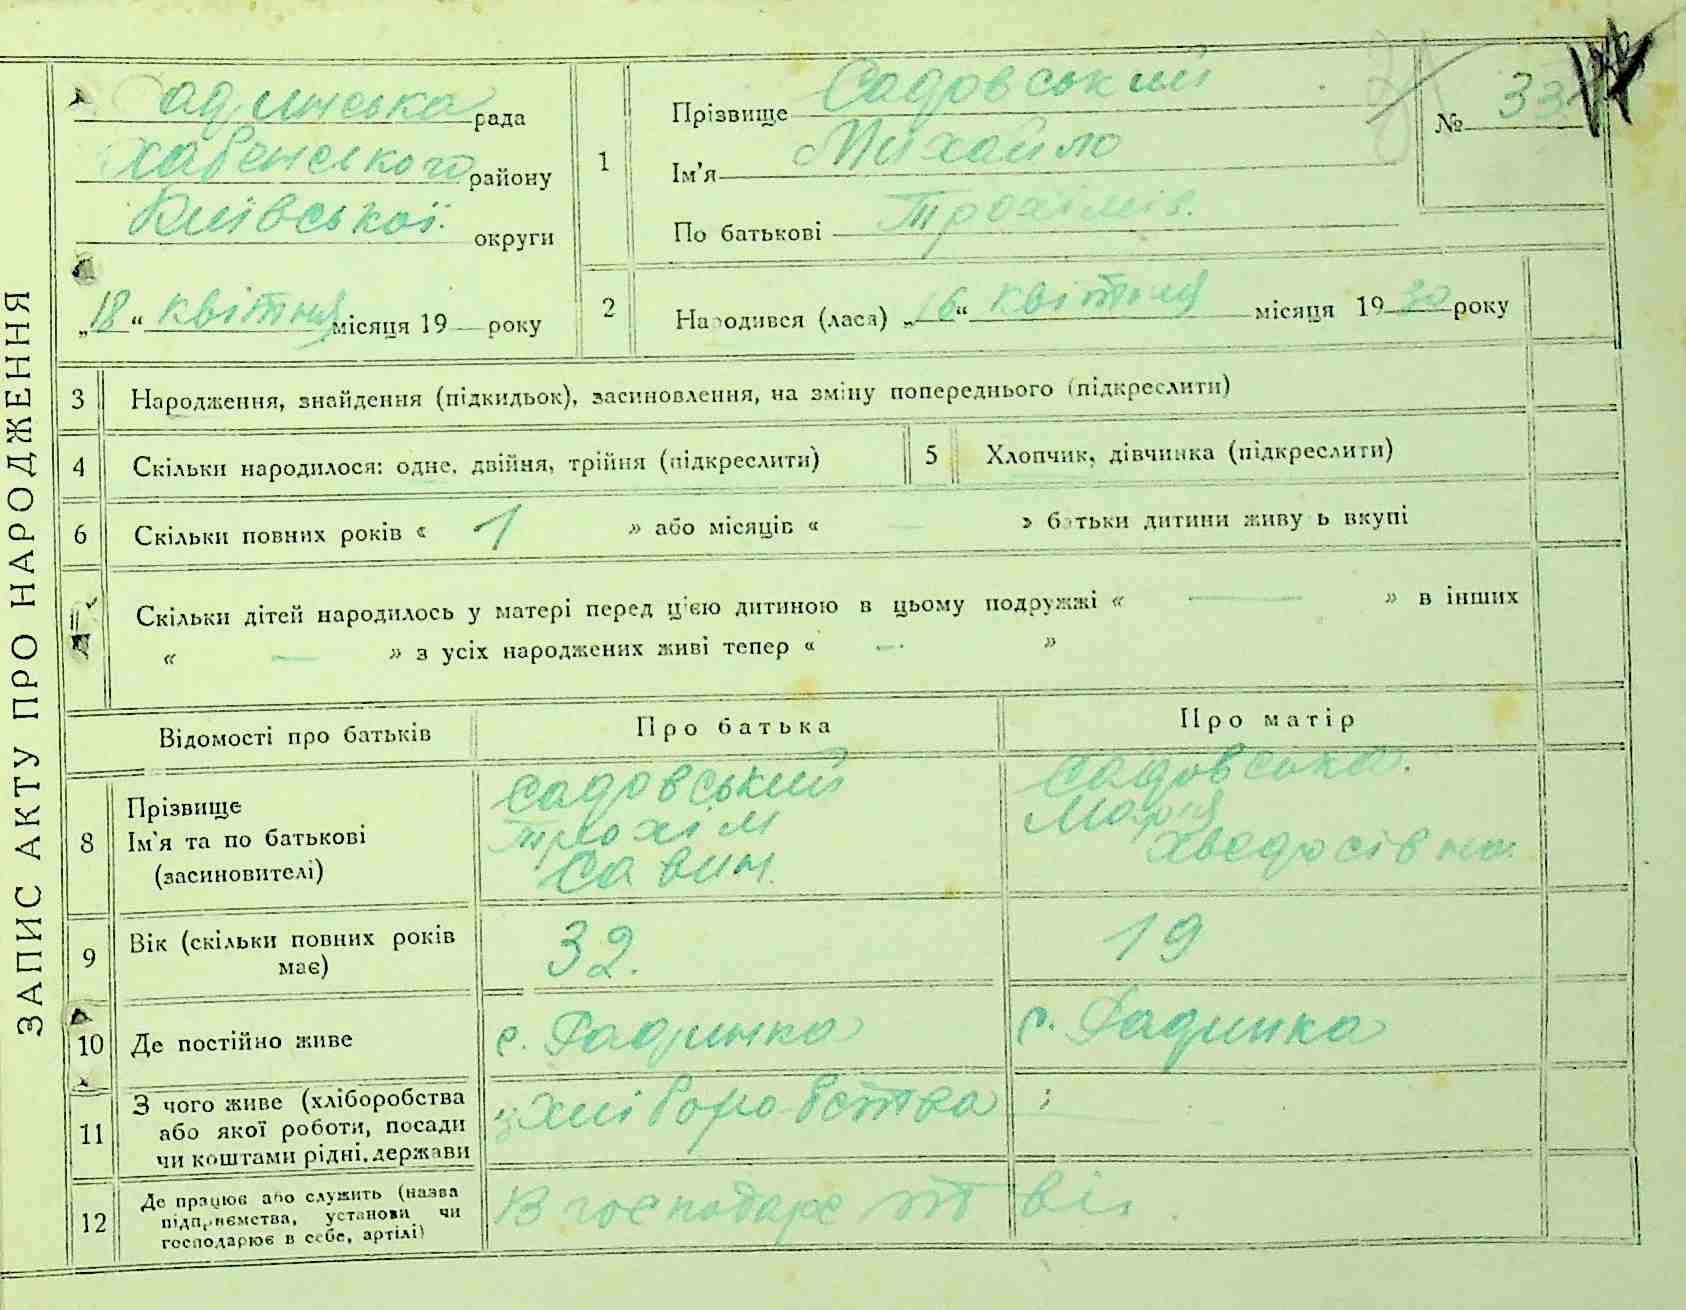 ЗАПИС АКТУ ПРО НАРОДЖЕННЯ
Радинська рада
Хабенського району
Київської округи
„18“ квітня місяця 19 — року
1
Прізвище Садовський
Ім'я Михайло
По батькові Трохімів.
№ 33
2
Народився (лася) „16“ квітня місяця 1930 року
3 Народження, знайдення (підкидьок), засиновлення, на зміну попереднього (підкреслити)
4 Скільки народилося: одне, двійня, трійня (підкреслити)
5 Хлопчик, дівчинка (підкреслити)
6 Скільки повних років « 1 » або місяців « — » батьки дитини живуть вкупі
Скільки дітей народилось у матері перед цією дитиною в цьому подружжі « — » в інших
« — » з усіх народжених живі тепер « — »
Відомості про батьків Про батька Про матір
8
Прізвище
Ім'я та по батькові
(засиновителі)
Садовський
Трохім
Савин.
Садовська.
Марія
Хведосівна.
9
Вік (скільки повних років
має)
32.
19
10 Де постійно живе с. Радинка с. Радинка
11
З чого живе (хліборобства
або якої роботи, посади
чи коштами рідні, держави
з хліборобства
12
Де працює або служить (назва
підприємства, установи чи
господарює в себе, артілі)
В господарстві